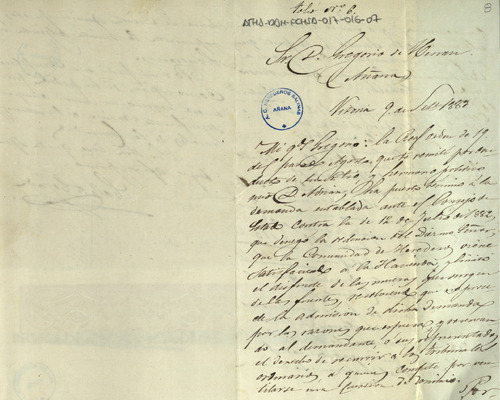 Folio nº 6.
ATHA-DAH-FCHSB-017-016-07
8
Sr. D. Gregorio de Herran
Añana
Vitoria 9 de Set. 1883
A.C. HEREDEROS SALINAS
AÑANA
Mi qdo Gregorio: la Real orden de 19
del pasado Agosto, que te remití por con-
ducto de tu sobrino y hermano político
mio D. Adrian, ha puesto termino á la
demanda entablada ante el Consejo de
Estado contra la de 12 de Julio de 1882,
que denegó la redencion del Diezmo
que la Comunidad de Herederos viene
satisfaciendo á la Hacienda,
el disfrute de las mueras que surgen
de las fuentes, resolviendo que
de la admision de dicha demanda
por las razones que espresa y reservan-
do al demandante, ó sus representantes
el derecho de recurrir á los tribunales
ordinarios, á quienes compete por ven-
tilarse una cuestion de dominio.
Por